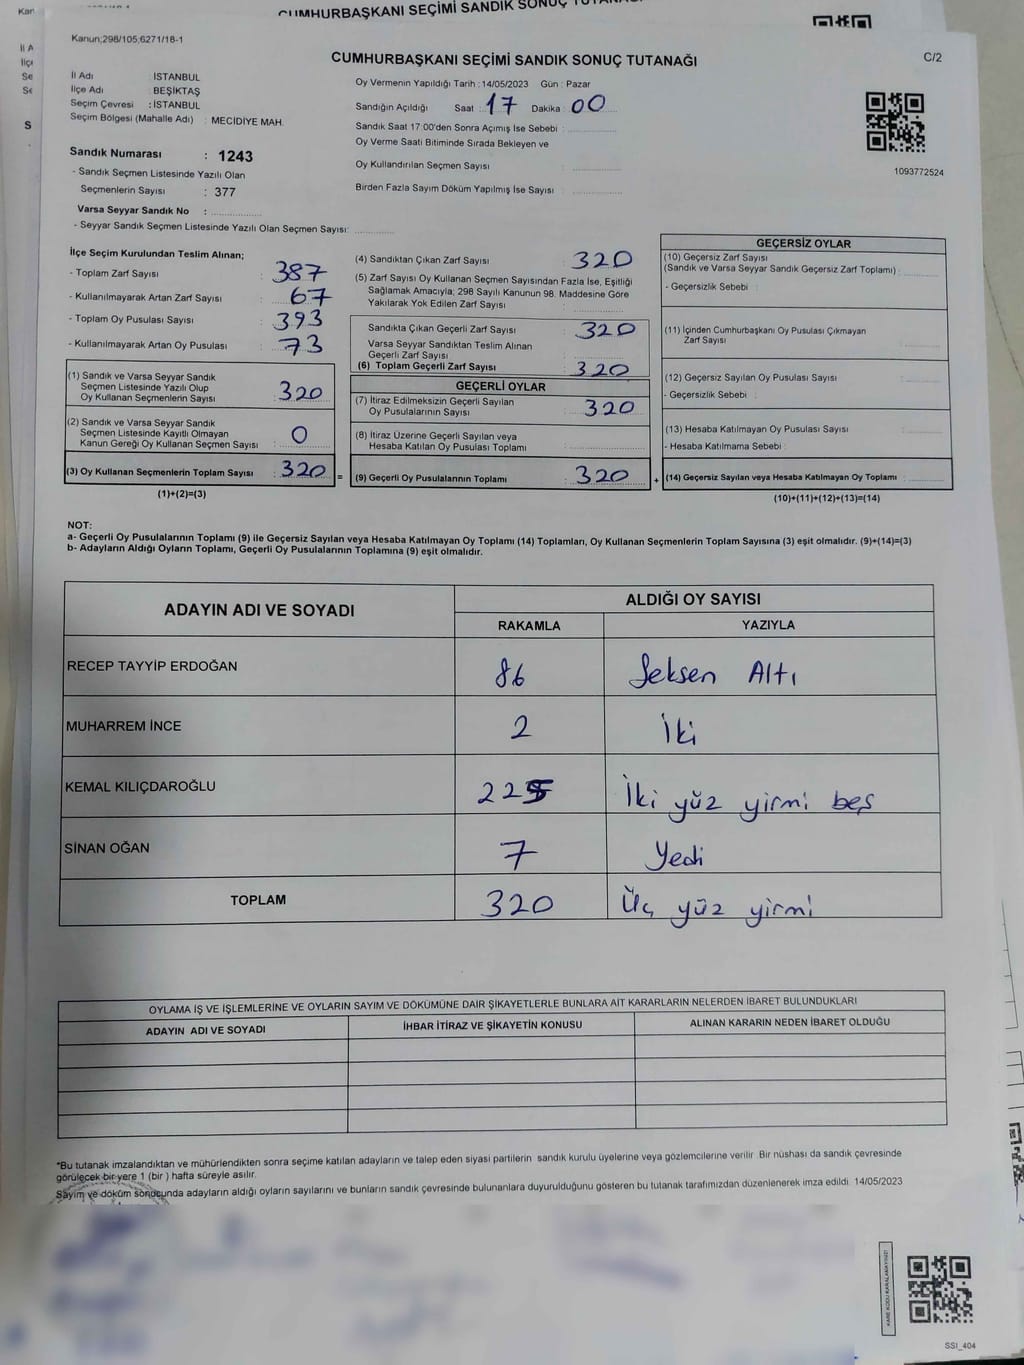 CUMHURBAŞKANI SEÇİMİ SANDIK SONUÇ TUTANAĞI
Kanun;298/105;6271/18-1
CUMHURBAŞKANI SEÇİMİ SANDIK SONUÇ TUTANAĞI
C/2
İl Adı : İSTANBUL
İlçe Adı : BEŞİKTAŞ
Seçim Çevresi : İSTANBUL
Seçim Bölgesi (Mahalle Adı) : MECİDİYE MAH.
Sandık Numarası : 1243
- Sandık Seçmen Listesinde Yazılı Olan
Seçmenlerin Sayısı : 377
Varsa Seyyar Sandık No :
- Seyyar Sandık Seçmen Listesinde Yazılı Olan Seçmen Sayısı:
Oy Vermenin Yapıldığı Tarih : 14/05/2023 Gün : Pazar
Sandığın Açıldığı Saat : 17 Dakika : 00
Sandık Saat 17:00'den Sonra Açımış İse Sebebi :
Oy Verme Saati Bitiminde Sırada Bekleyen ve
Oy Kullandırılan Seçmen Sayısı :
Birden Fazla Sayım Döküm Yapılmış İse Sayısı :
1093772524
İlçe Seçim Kurulundan Teslim Alınan;
- Toplam Zarf Sayısı : 387
- Kullanılmayarak Artan Zarf Sayısı : 67
- Toplam Oy Pusulası Sayısı : 393
- Kullanılmayarak Artan Oy Pusulası : 73
(1) Sandık ve Varsa Seyyar Sandık
Seçmen Listesinde Yazılı Olup
Oy Kullanan Seçmenlerin Sayısı : 320
(2) Sandık ve Varsa Seyyar Sandık
Seçmen Listesinde Kayıtlı Olmayan
Kanun Gereği Oy Kullanan Seçmen Sayısı : 0
(3) Oy Kullanan Seçmenlerin Toplam Sayısı : 320 =
(1)+(2)=(3)
(4) Sandıktan Çıkan Zarf Sayısı : 320
(5) Zarf Sayısı Oy Kullanan Seçmen Sayısından Fazla İse, Eşitliği
Sağlamak Amacıyla; 298 Sayılı Kanunun 98. Maddesine Göre
Yakılarak Yok Edilen Zarf Sayısı :
Sandıkta Çıkan Geçerli Zarf Sayısı : 320
Varsa Seyyar Sandıktan Teslim Alınan
Geçerli Zarf Sayısı :
(6) Toplam Geçerli Zarf Sayısı : 320
GEÇERLİ OYLAR
(7) İtiraz Edilmeksizin Geçerli Sayılan
Oy Pusulalarının Sayısı : 320
(8) İtiraz Üzerine Geçerli Sayılan veya
Hesaba Katılan Oy Pusulası Toplamı :
(9) Geçerli Oy Pusulalarının Toplamı : 320 +
GEÇERSİZ OYLAR
(10) Geçersiz Zarf Sayısı
(Sandık ve Varsa Seyyar Sandık Geçersiz Zarf Toplamı) :
- Geçersizlik Sebebi :
(11) İçinden Cumhurbaşkanı Oy Pusulası Çıkmayan
Zarf Sayısı :
(12) Geçersiz Sayılan Oy Pusulası Sayısı :
- Geçersizlik Sebebi :
(13) Hesaba Katılmayan Oy Pusulası Sayısı :
- Hesaba Katılmama Sebebi :
(14) Geçersiz Sayılan veya Hesaba Katılmayan Oy Toplamı :
(10)+(11)+(12)+(13)=(14)
NOT:
a- Geçerli Oy Pusulalarının Toplamı (9) ile Geçersiz Sayılan veya Hesaba Katılmayan Oy Toplamı (14) Toplamları, Oy Kullanan Seçmenlerin Toplam Sayısına (3) eşit olmalıdır. (9)+(14)=(3)
b- Adayların Aldığı Oyların Toplamı, Geçerli Oy Pusulalarının Toplamına (9) eşit olmalıdır.
ADAYIN ADI VE SOYADI
ALDIĞI OY SAYISI
RAKAMLA YAZIYLA
RECEP TAYYİP ERDOĞAN 86 Seksen Altı
MUHARREM İNCE 2 İki
KEMAL KILIÇDAROĞLU 225 İki yüz yirmi beş
SİNAN OĞAN 7 Yedi
TOPLAM 320 Üç yüz yirmi
OYLAMA İŞ VE İŞLEMLERİNE VE OYLARIN SAYIM VE DÖKÜMÜNE DAİR ŞİKAYETLERLE BUNLARA AİT KARARLARIN NELERDEN İBARET BULUNDUKLARI
ADAYIN ADI VE SOYADI İHBAR İTİRAZ VE ŞİKAYETİN KONUSU ALINAN KARARIN NEDEN İBARET OLDUĞU
*Bu tutanak imzalandıktan ve mühürlendikten sonra seçime katılan adayların ve talep eden siyasi partilerin sandık kurulu üyelerine veya gözlemcilerine verilir. Bir nüshası da sandık çevresinde
görülecek bir yere 1 (bir ) hafta süreyle asılır.
Sayım ve döküm sonucunda adayların aldığı oyların sayılarını ve bunların sandık çevresinde bulunanlara duyurulduğunu gösteren bu tutanak tarafımızdan düzenlenerek imza edildi. 14/05/2023
KARE KODU KARALAMAYINIZ!
SSI_404